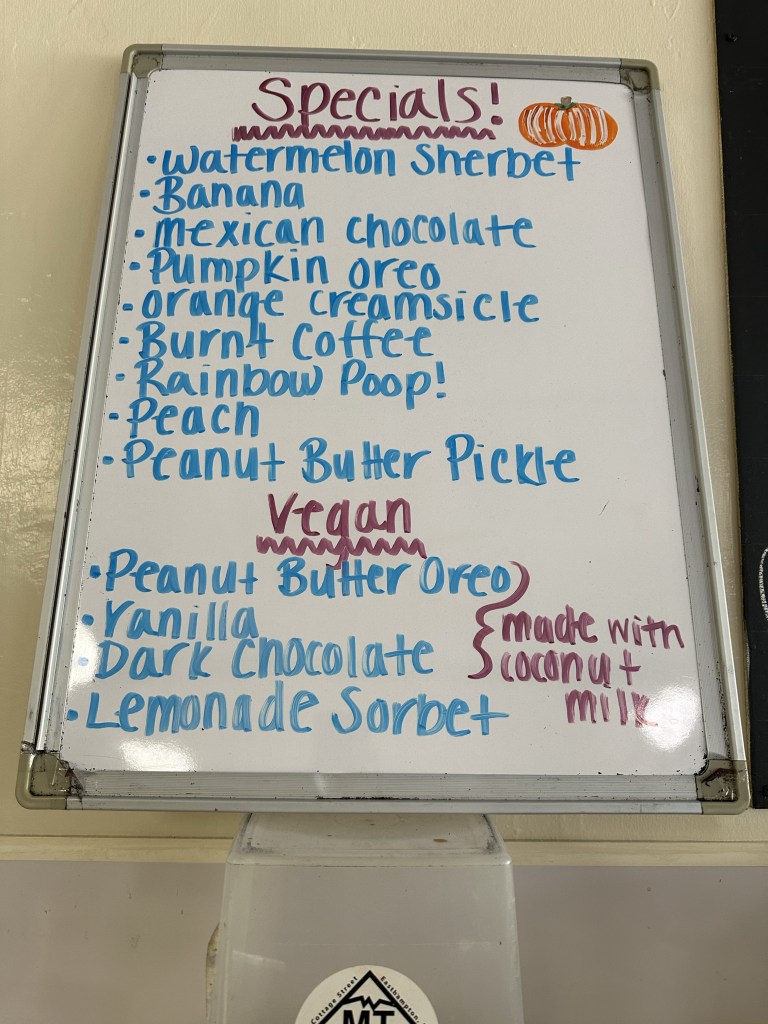 Specials!
• Watermelon Sherbet
• Banana
• mexican chocolate
• Pumpkin oreo
• orange creamsicle
• Burnt Coffee
• Rainbow Poop!
• Peach
• Peanut Butter Pickle
Vegan
• Peanut Butter Oreo
• Vanilla
• Dark Chocolate
made with
coconut
milk
• Lemonade Sorbet
Cottage Street Easthampton
MT